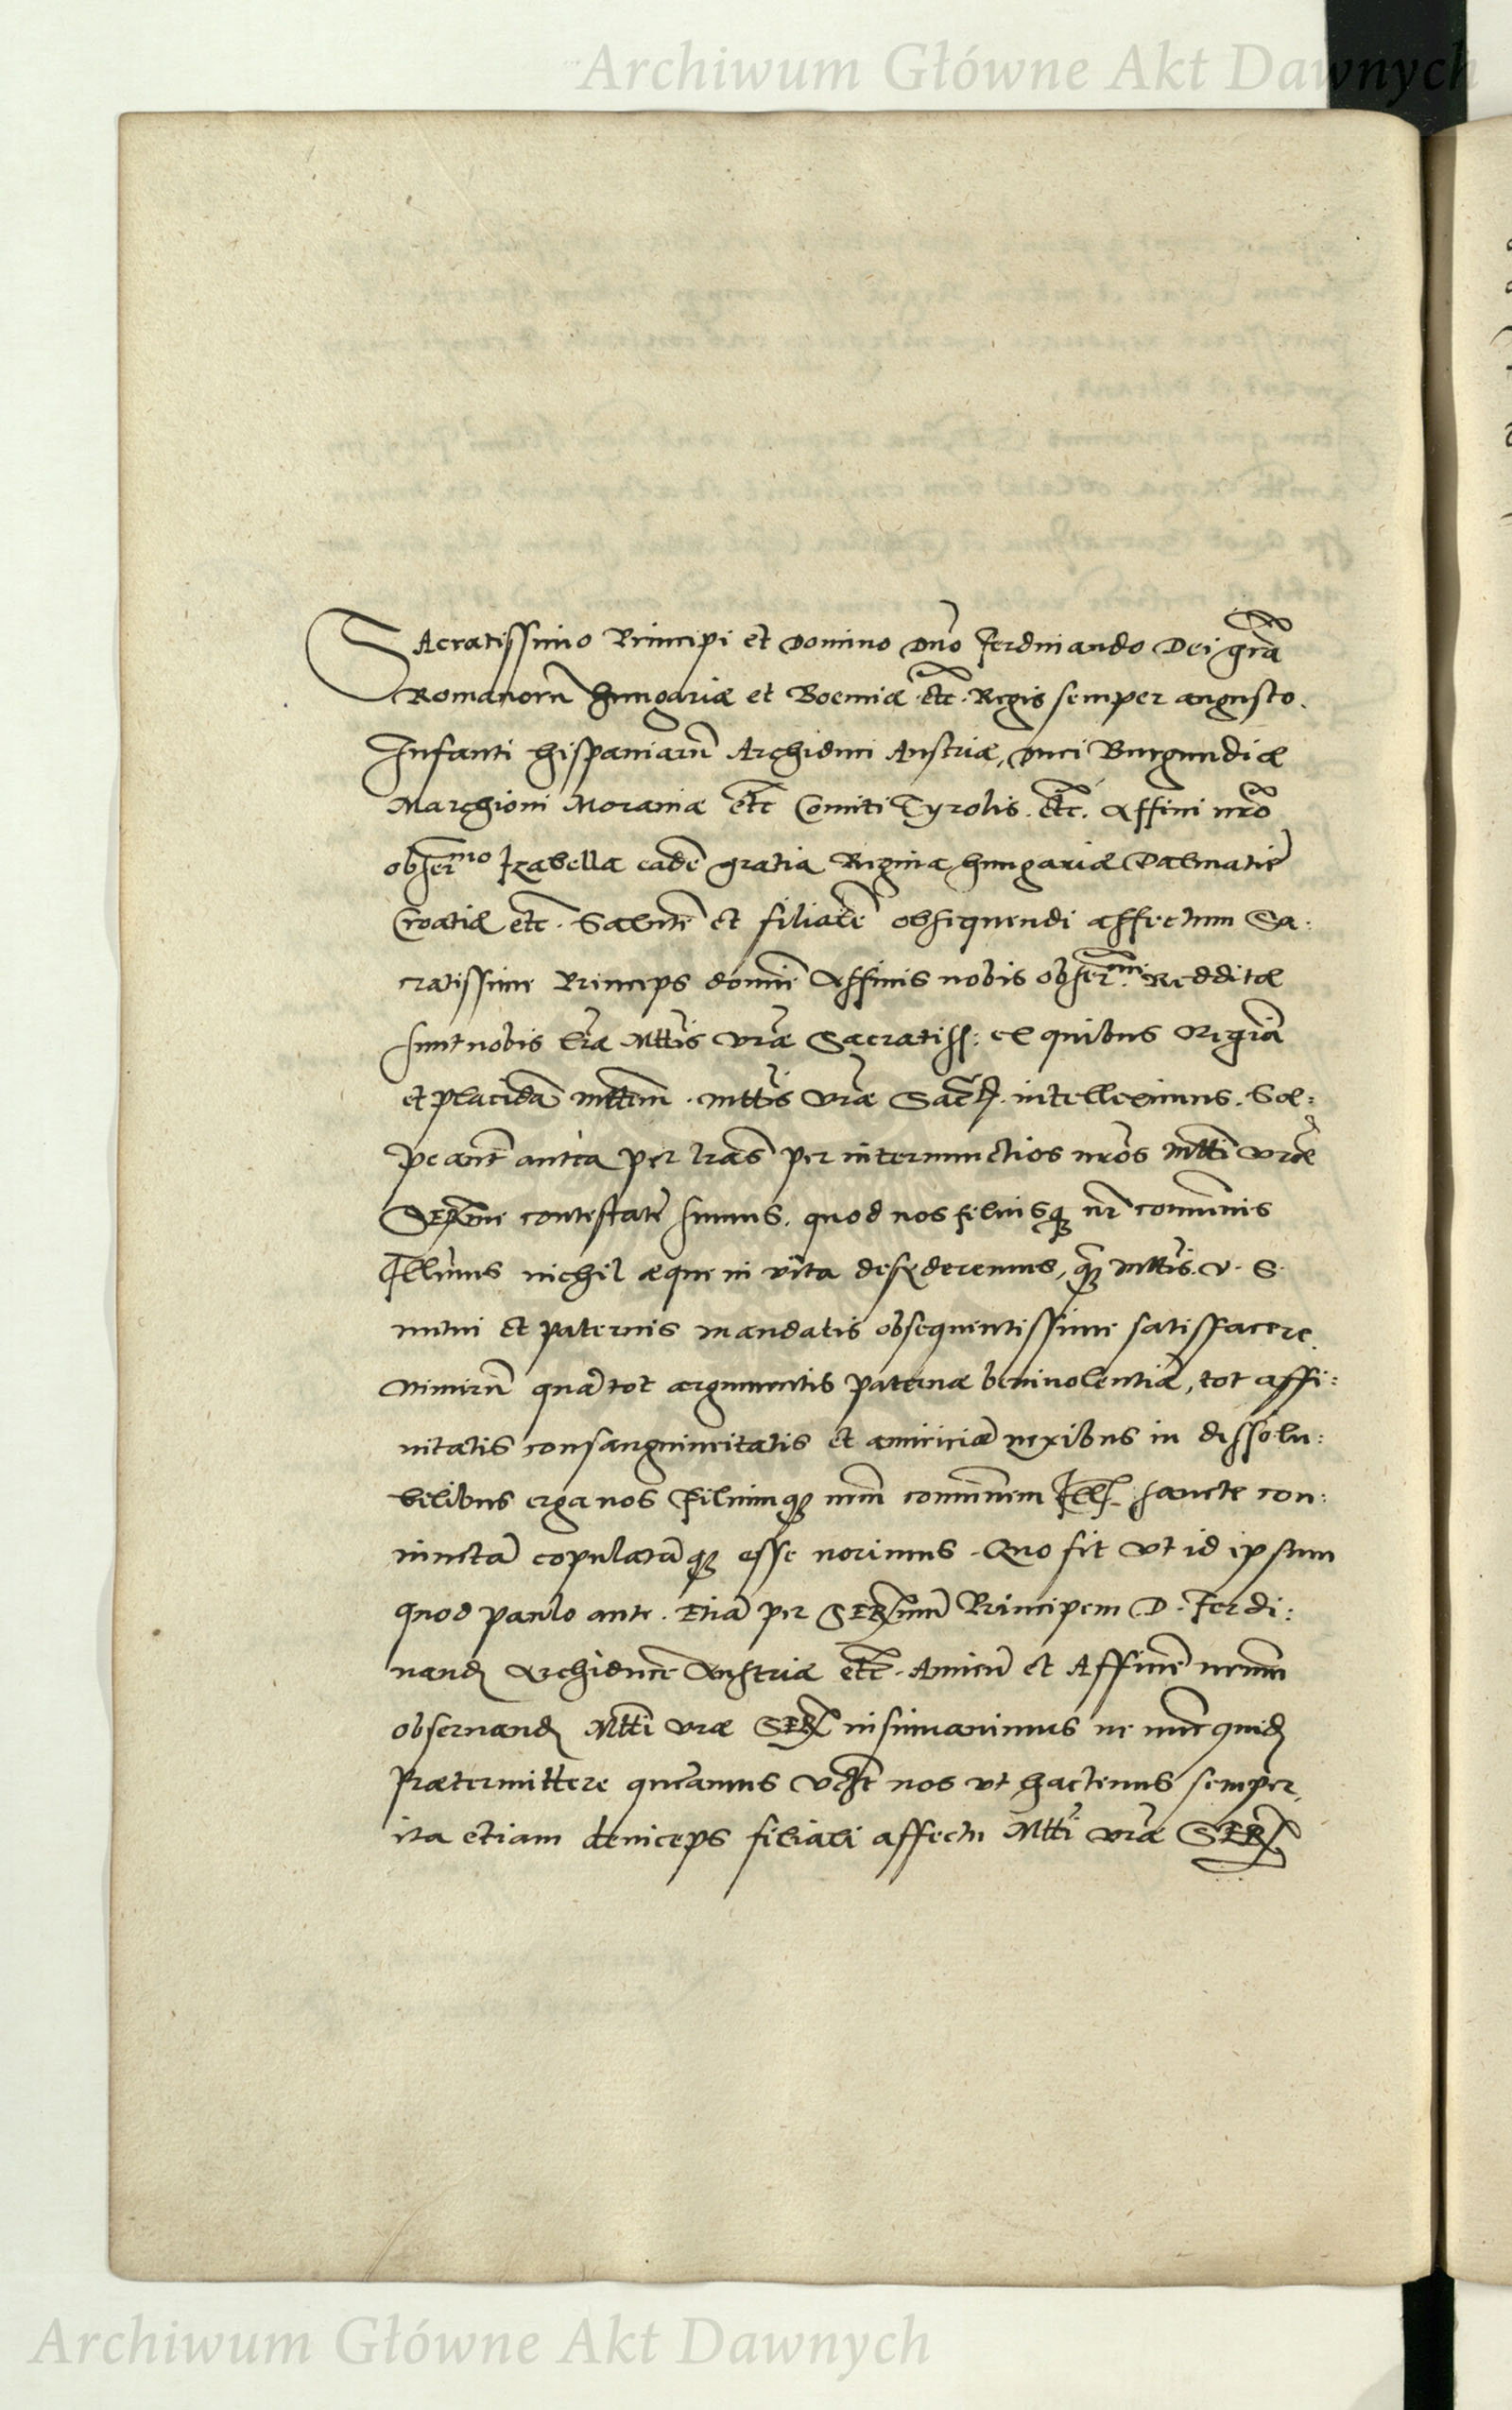 Archiwum Główne Akt Dawnych
SAcratissimo Principi et Domino Dño Ferdinando Dei grã
Romanorũ Hungariæ et Boemiæ etc̃. Regis semper augusto.
Infanti hispaniarũ Archiduci Austriæ, Duci Burgundiæ
Marchioni Morauiæ etc̃ Comiti Tyrolis. etc̃. Affini nr̃o
obserᵐᵒ Izabella eadẽ gratia Regina hungariæ Dalmatiẽ
Croatiæ etc̃. Salutẽ et filialẽ obsequendi affectum Sa:
cratissime Princeps domiñe Affinis nobis obserᵐᵉ. Redditæ
sunt nobis lr̃æ Mttis̃ vr̃æ Sacratiss: ex quibus Regiã
et placidã mttem̃. mttis̃ vr̃æ Sacr̃. intelleximus. Sæ:
pe aut̃ antea per lr̃as per internunctios nr̃os Mtti vr̃æ
SERme contestatẽ sumus. quod nos filiusq̃ nr̃ communis
Illm̃us nichil æque in vita desyderemus, q̃ Mttis̃. V. S.
nutui et paternis mandatis obsequentissime satisfacere.
Nimirũ quã tot argumentis paternæ beniuolentiæ, tot affi:
nitatis consanguineitatis et amiciciæ nexibus in dissolu:
bilibus erga nos Filiumq̃ nr̃m communem Ill. sancte con:
iunctã copulatãq̃ esse norimus. Quo fit vt id ipsum
quod paulo ante. Etiã per SERmum̃ Principem D. Ferdi:
nand̃ Archiducẽ Austriæ etc̃. Amicũ et Affinẽ nr̃um
obseruand̃ Mtti vræ SER insinuauimus ne nunc quid̃
prætermittere queamus nos vt hactenus semper,
ita etiam deinceps filiali affectu Mtti vr̃æ SER
Archiwum Główne Akt Dawnych